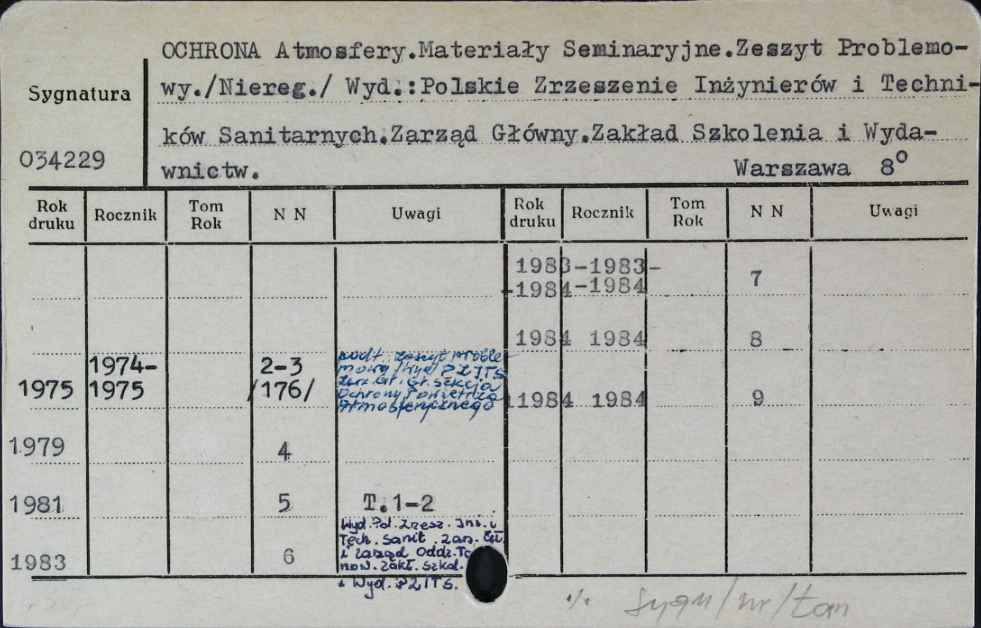 OCHRONA Atmosfery.Materiały Seminaryjne.Zeszyt Problemo-
Sygnatura wy./Niereg./ Wyd.:Polskie Zrzeszenie Inżynierów i Techni-
ków Sanitarnych.Zarząd Główny.Zakład Szkolenia i Wyda-
034229 wnictw. Warszawa 8º
Rok druku Rocznik Tom Rok N N Uwagi Rok druku Rocznik Tom Rok N N Uwagi
1974-
1975 1975 2-3 /176/
podt. zeszyt proble
mowy/Wyd/PZITS
Ochrony Powietrza
Atmosferycznego
1979 4
1981 5 T.1-2
Wyd. Pol. Zrzesz. Inż. i
Tech. Sanit. Zarz. Gł
i Zarząd Oddz. To
now. Zakł. Szkol.
i Wyd. PZITS.
1983 6
1983-1983-
-1984-1984 7
1984 1984 8
1984 1984 9
./. sygn/nr/tom